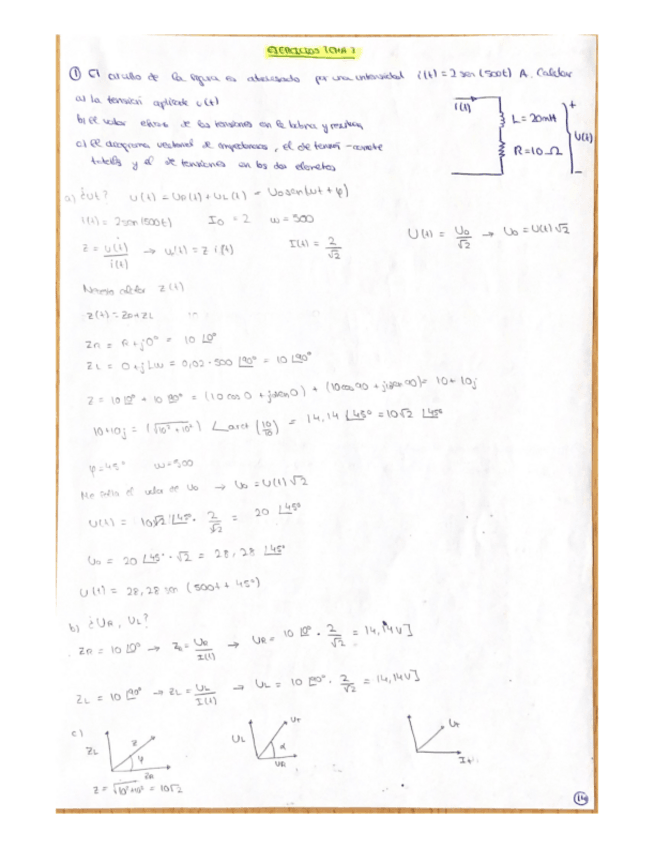 EJERCICIOS TEMA 7
① El circuito de la figura es atravesado por una intensidad i(t) = 2 sen (500t) A. Calcular
a) la tensión aplicada u(t)
b) El valor eficaz de las tensiones en la bobina y resistencia
c) El diagrama vectorial de impedancias, el de tensión-corriente
totales y el de tensiones en los dos elementos
i(t)
L = 20mH
R = 10 Ω
+
U(t)
-
a) ¿ut? u(t) = UR(t) + UL(t) = U0 sen(ωt + φ)
i(t) = 2 sen(500t) I0 = 2 ω = 500
U(t) = U0/√2 → U0 = U(t) √2
Z = u(t)/i(t) → u(t) = Z i(t) I(t) = 2/√2
Z(t)
Z(t) = ZR + ZL
ZR = R + j0° = 10 ∠0°
ZL = 0 + jLω = 0,02 · 500 ∠90° = 10 ∠90°
Z = 10 ∠0° + 10 ∠90° = (10 cos 0 + j sen 0) + (10 cos 90 + j sen 90) = 10 + 10j
10 + 10j = (√10² + 10²) ∠arct (10/10) = 14,14 ∠45° = 10√2 ∠45°
φ = 45° ω = 500
Me falta el valor de U0 → U0 = U(t) √2
U(t) = 10√2 ∠45° · 2/√2 = 20 ∠45°
U0 = 20 ∠45° · √2 = 28,28 ∠45°
U(t) = 28,28 sen (500t + 45°)
b) ¿UR, UL?
ZR = 10 ∠0° → ZR = UR/I(t) → UR = 10 ∠0° · 2/√2 = 14,14V]
ZL = 10 ∠90° → ZL = UL/I(t) → UL = 10 ∠90° · 2/√2 = 14,14V]
c)
ZL Z φ ZR
UL UT α UR
UT It
Z = √10² + 10² = 10√2
14